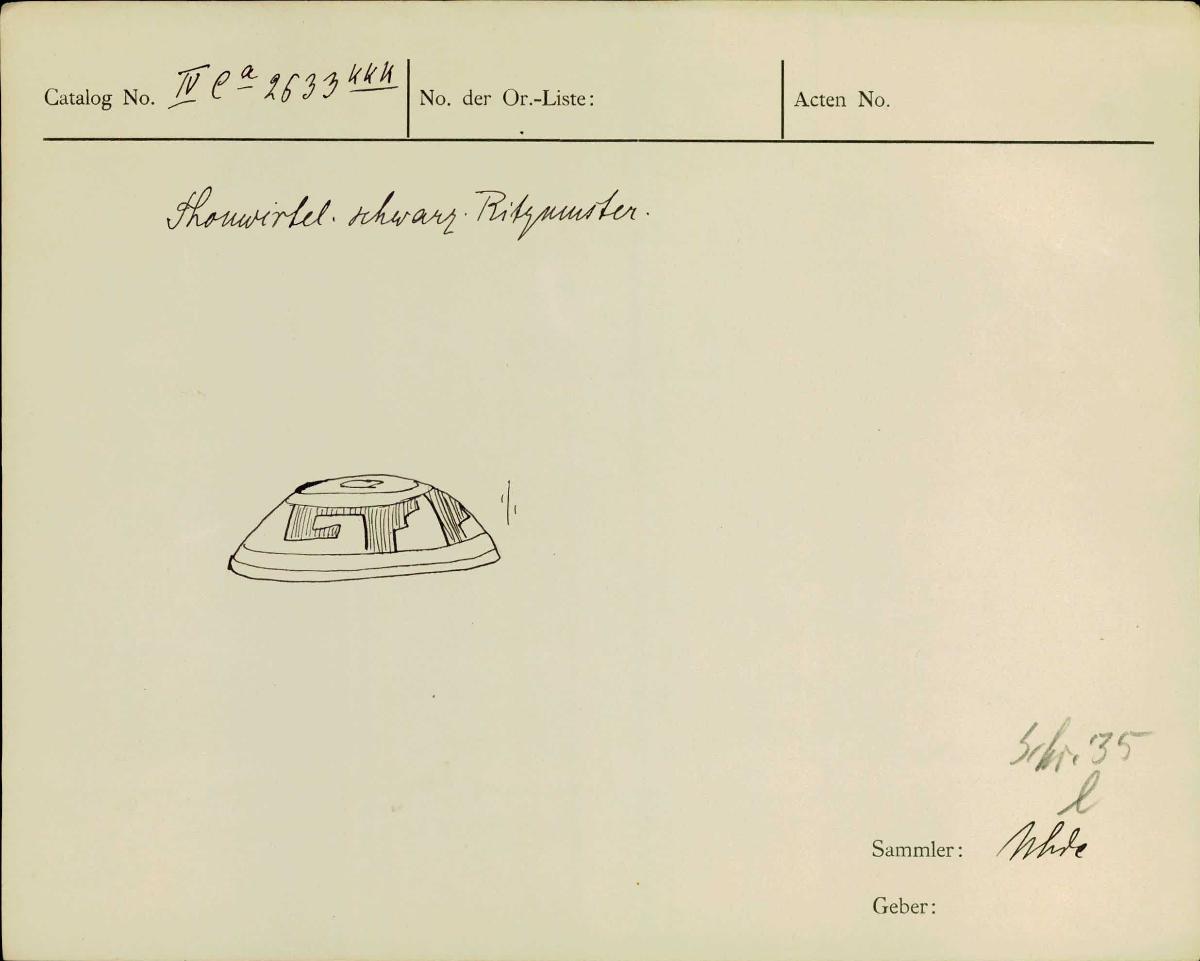 Catalog No. IV Ca 2633 kkk No. der Or.-Liste: Acten No.
Thonwirtel. schwarz. Ritzmuster.
Schr. 35
l
Sammler: Uhde
Geber: